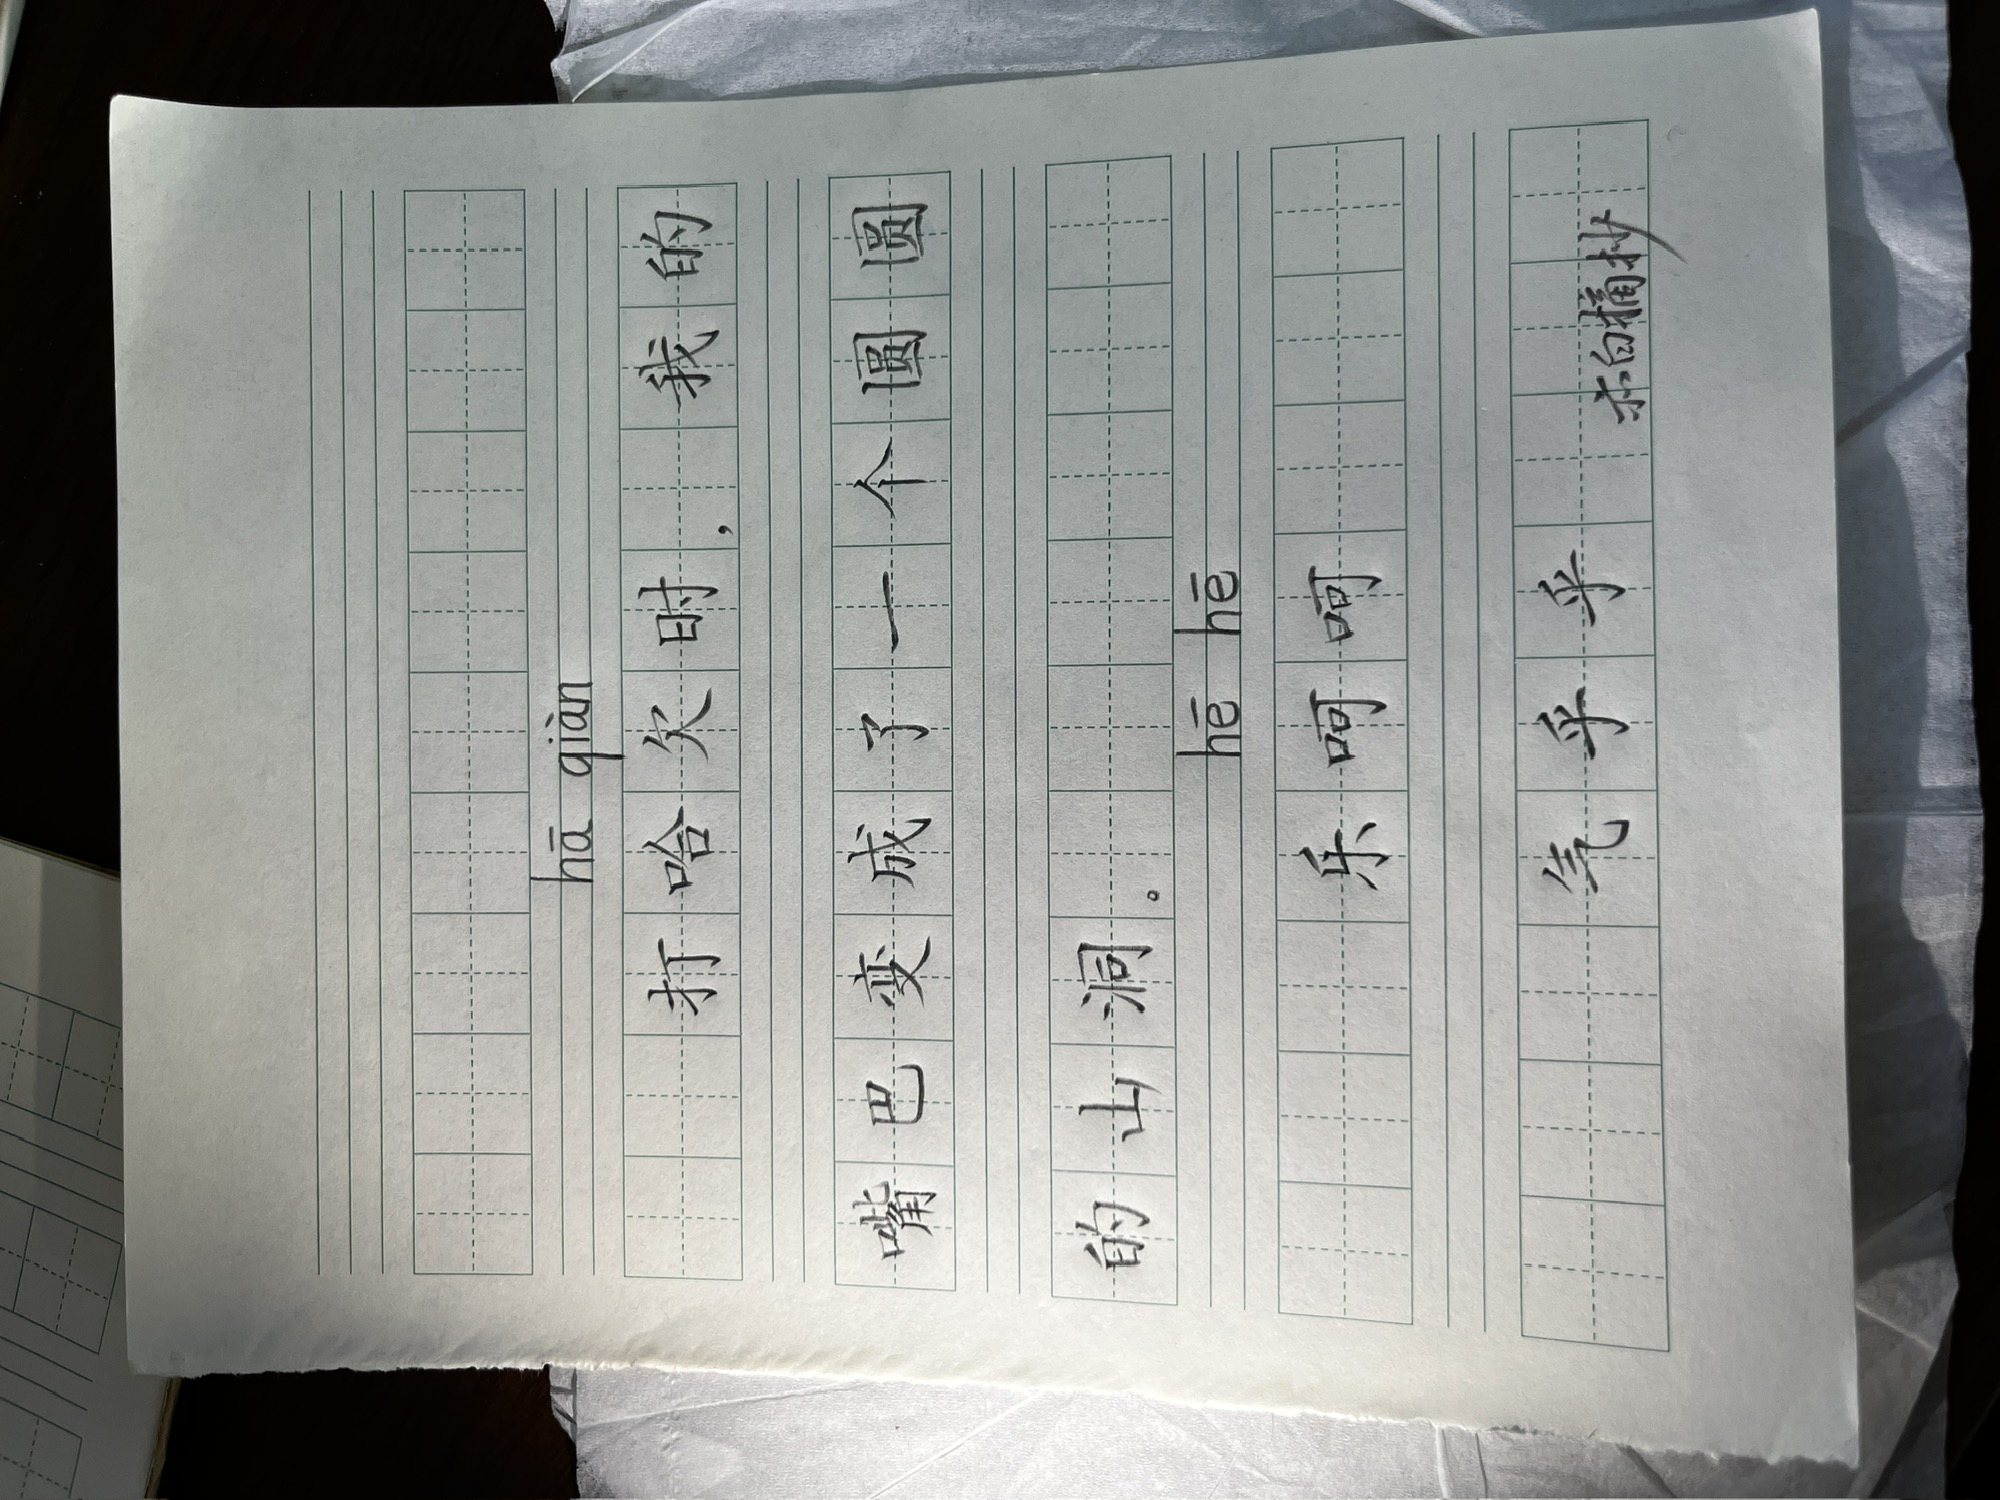 hā qiàn
打哈欠时，我的
嘴巴变成了一个圆圆
的山洞。
hē hē
乐呵呵
气乎乎